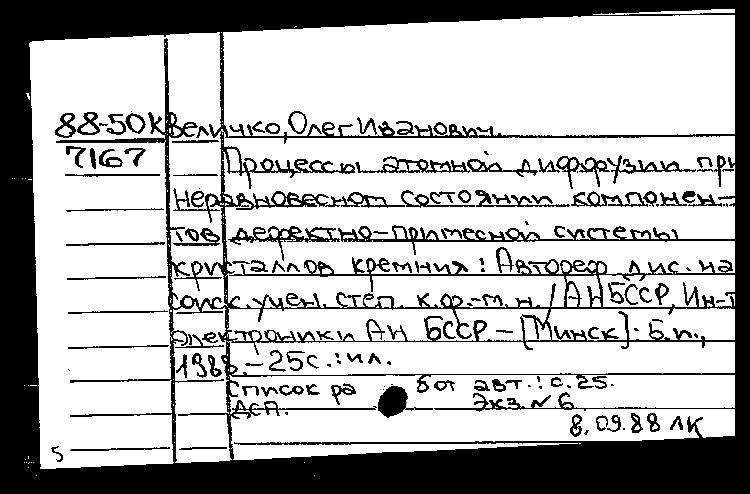 88-50К Величко, Олег Иванович.
7167 Процессы атомной диффузии при
неравновесном состоянии компонен-
тов дефектно-примесной системы
кристаллов кремния: Автореф. дис. на
соиск. учен. степ. к.ф.-м.н. / АН БССР, Ин-т
электроники АН БССР - [Минск]: Б.и.,
1988. - 25с.: ил.
Список работ авт.: с.25.
ДСП. Экз. № 6
8.09.88 ЛК
5